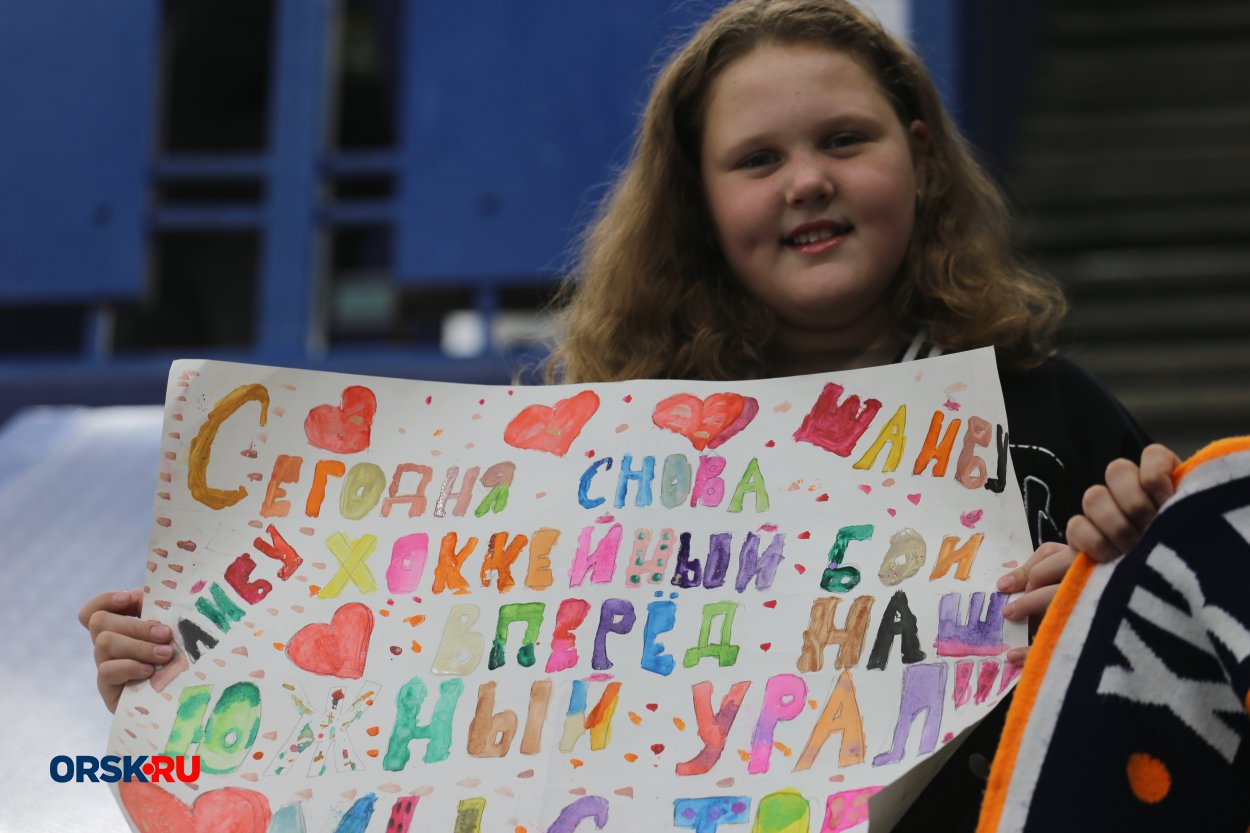 ШАЙБУ
Сегодня снова
ШАЙБУ
хоккейный бой
вперёд наш
Южный Урал!!!
ORSK.RU